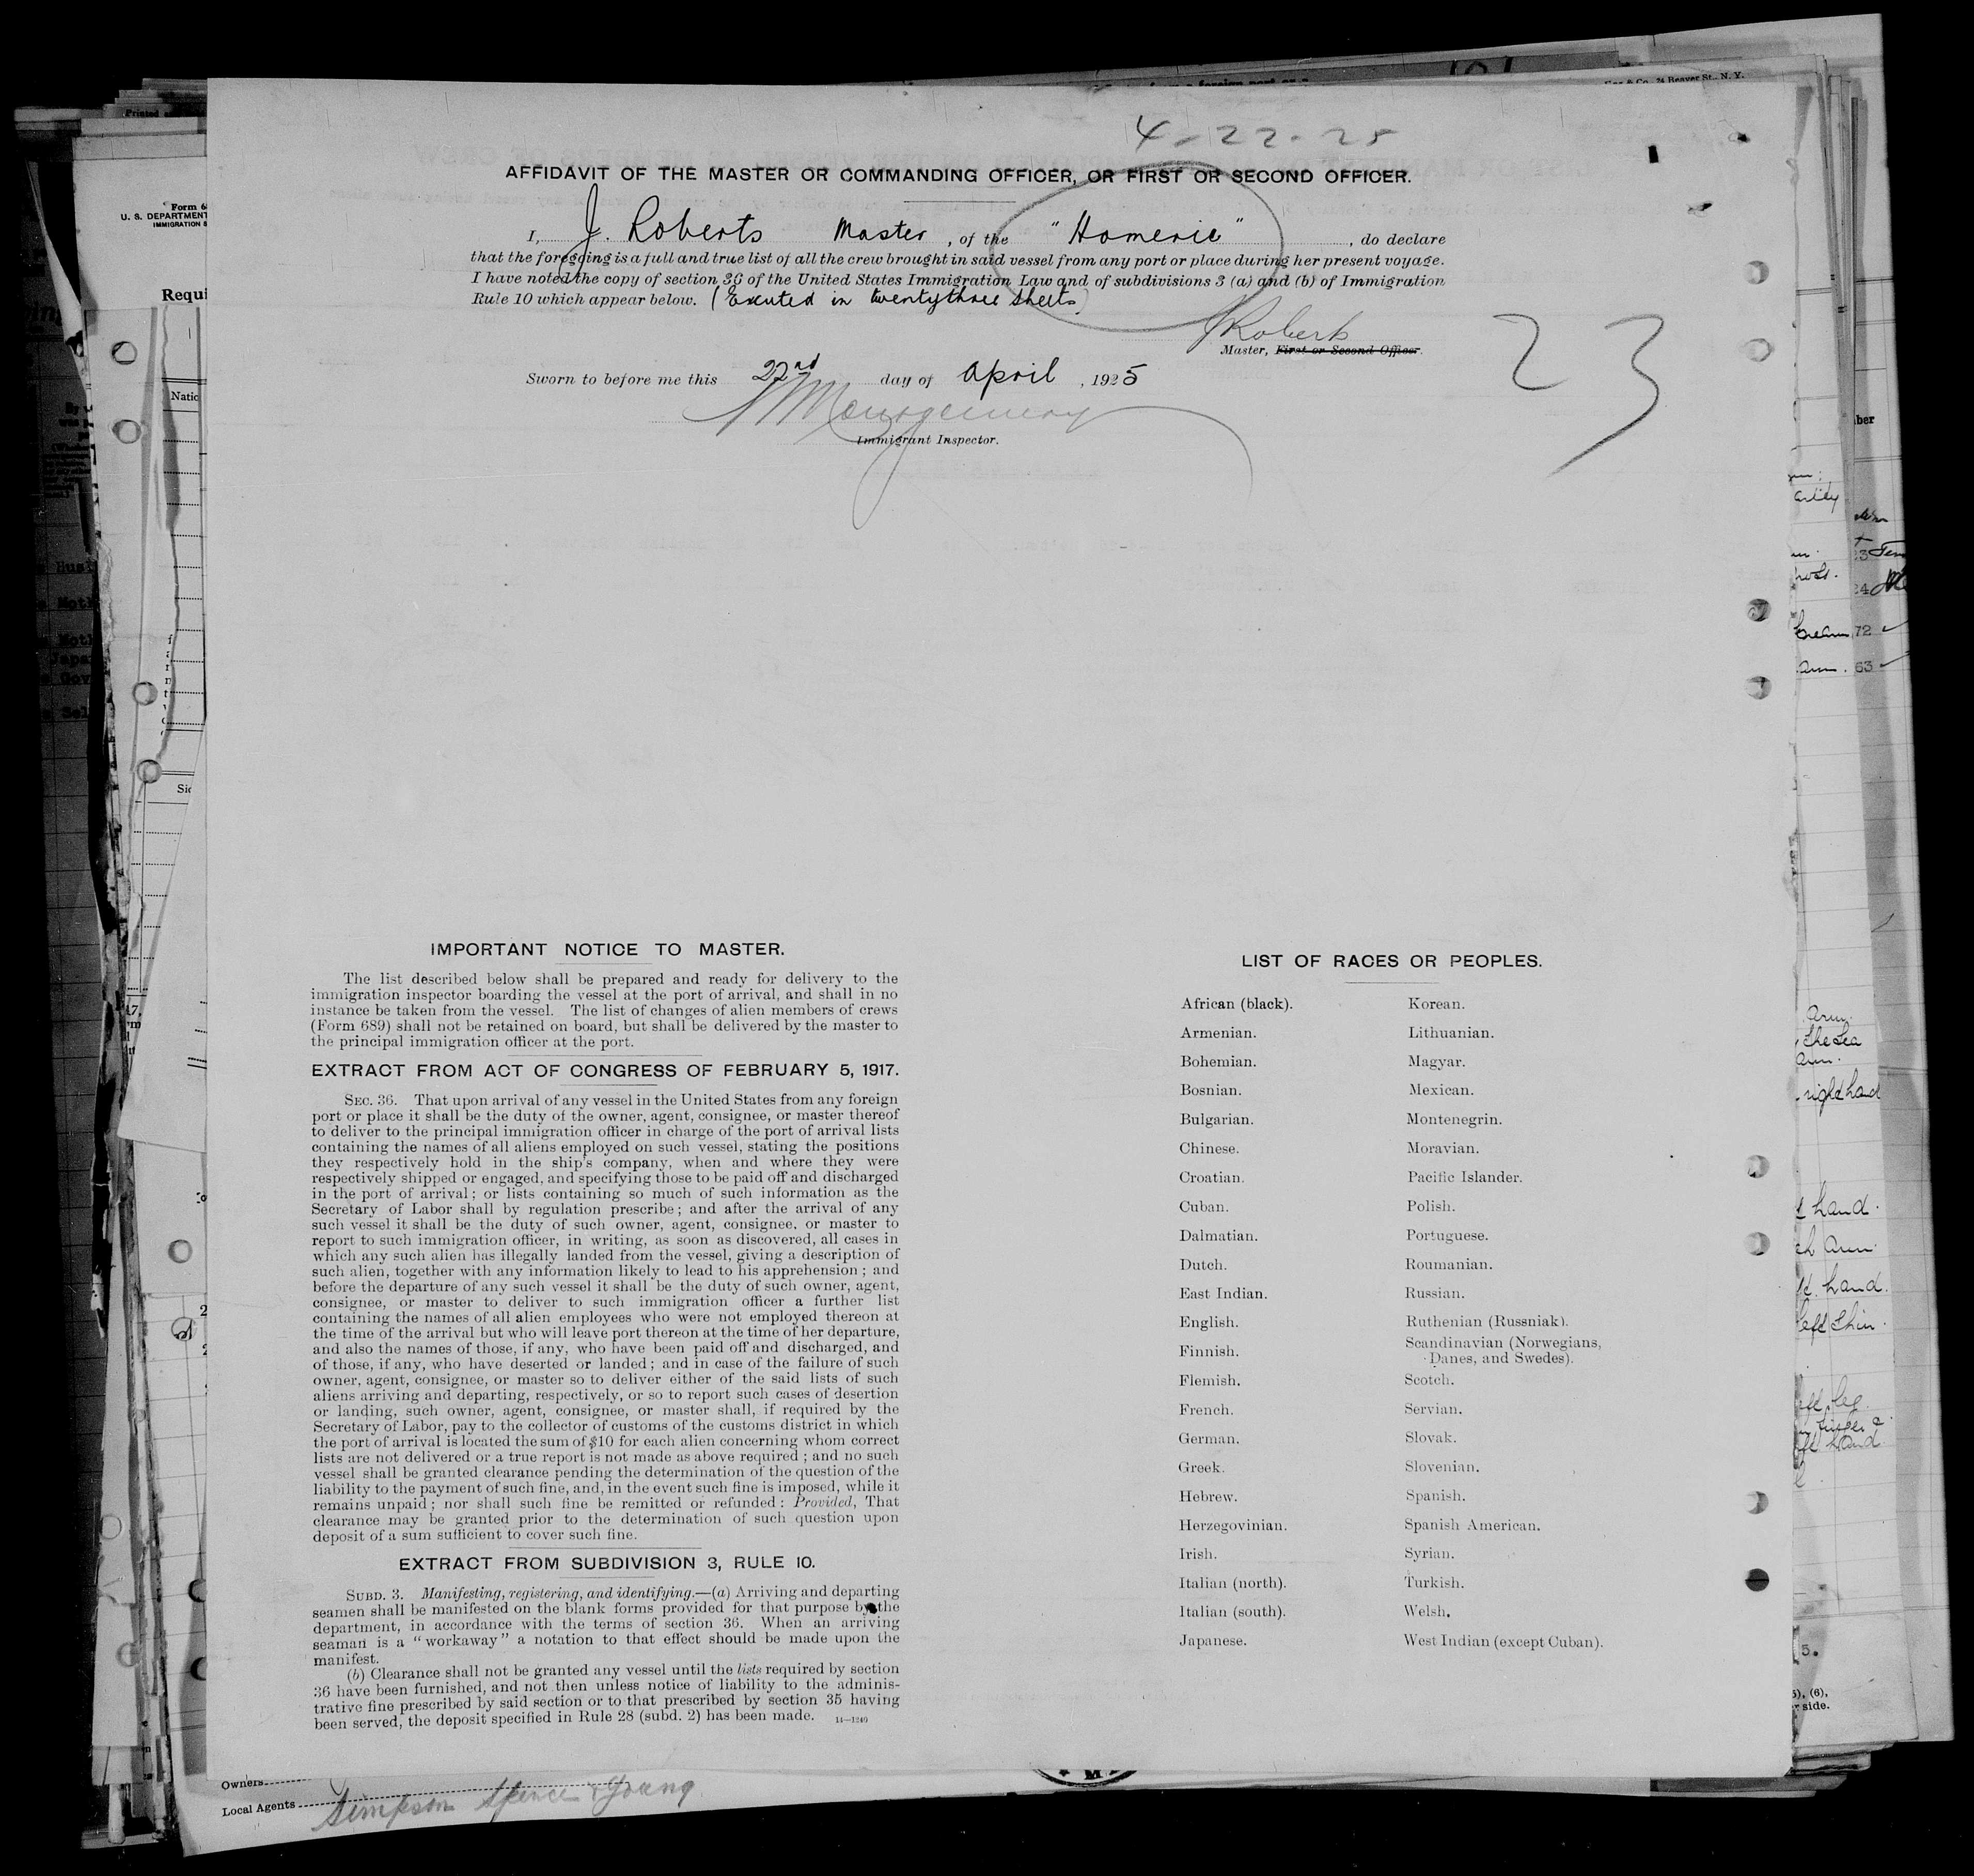 4-22-25
AFFIDAVIT OF THE MASTER OR COMMANDING OFFICER, OR FIRST OR SECOND OFFICER.
I, J. Roberts Master , of the "Homeric" , do declare
that the foregoing is a full and true list of all the crew brought in said vessel from any port or place during her present voyage.
I have noted the copy of section 36 of the United States Immigration Law and of subdivisions 3 (a) and (b) of Immigration
Rule 10 which appear below. (Excuted in twentythree sheets)
J Roberts
Master, First or Second Officer.
23
Sworn to before me this 22nd day of April , 1925
Immigrant Inspector.
IMPORTANT NOTICE TO MASTER.
The list described below shall be prepared and ready for delivery to the
immigration inspector boarding the vessel at the port of arrival, and shall in no
instance be taken from the vessel. The list of changes of alien members of crews
(Form 689) shall not be retained on board, but shall be delivered by the master to
the principal immigration officer at the port.
EXTRACT FROM ACT OF CONGRESS OF FEBRUARY 5, 1917.
SEC. 36. That upon arrival of any vessel in the United States from any foreign
port or place it shall be the duty of the owner, agent, consignee, or master thereof
to deliver to the principal immigration officer in charge of the port of arrival lists
containing the names of all aliens employed on such vessel, stating the positions
they respectively hold in the ship's company, when and where they were
respectively shipped or engaged, and specifying those to be paid off and discharged
in the port of arrival; or lists containing so much of such information as the
Secretary of Labor shall by regulation prescribe; and after the arrival of any
such vessel it shall be the duty of such owner, agent, consignee, or master to
report to such immigration officer, in writing, as soon as discovered, all cases in
which any such alien has illegally landed from the vessel, giving a description of
such alien, together with any information likely to lead to his apprehension; and
before the departure of any such vessel it shall be the duty of such owner, agent,
consignee, or master to deliver to such immigration officer a further list
containing the names of all alien employees who were not employed thereon at
the time of the arrival but who will leave port thereon at the time of her departure,
and also the names of those, if any, who have been paid off and discharged, and
of those, if any, who have deserted or landed; and in case of the failure of such
owner, agent, consignee, or master so to deliver either of the said lists of such
aliens arriving and departing, respectively, or so to report such cases of desertion
or landing, such owner, agent, consignee, or master shall, if required by the
Secretary of Labor, pay to the collector of customs of the customs district in which
the port of arrival is located the sum of $10 for each alien concerning whom correct
lists are not delivered or a true report is not made as above required; and no such
vessel shall be granted clearance pending the determination of the question of the
liability to the payment of such fine, and, in the event such fine is imposed, while it
remains unpaid; nor shall such fine be remitted or refunded: Provided, That
clearance may be granted prior to the determination of such question upon
deposit of a sum sufficient to cover such fine.
EXTRACT FROM SUBDIVISION 3, RULE 10.
SUBD. 3. Manifesting, registering, and identifying.—(a) Arriving and departing
seamen shall be manifested on the blank forms provided for that purpose by the
department, in accordance with the terms of section 36. When an arriving
seaman is a "workaway" a notation to that effect should be made upon the
manifest.
(b) Clearance shall not be granted any vessel until the lists required by section
36 have been furnished, and not then unless notice of liability to the adminis-
trative fine prescribed by said section or to that prescribed by section 35 having
been served, the deposit specified in Rule 28 (subd. 2) has been made. 14—1240
LIST OF RACES OR PEOPLES.
African (black).
Armenian.
Bohemian.
Bosnian.
Bulgarian.
Chinese.
Croatian.
Cuban.
Dalmatian.
Dutch.
East Indian.
English.
Finnish.
Flemish.
French.
German.
Greek.
Hebrew.
Herzegovinian.
Irish.
Italian (north).
Italian (south).
Japanese.
Korean.
Lithuanian.
Magyar.
Mexican.
Montenegrin.
Moravian.
Pacific Islander.
Polish.
Portuguese.
Roumanian.
Russian.
Ruthenian (Russniak).
Scandinavian (Norwegians,
Danes, and Swedes).
Scotch.
Servian.
Slovak.
Slovenian.
Spanish.
Spanish American.
Syrian.
Turkish.
Welsh.
West Indian (except Cuban).
Owners
Local Agents Simpson Spence & Young
Form 6
U. S. DEPARTMENT
IMMIGRATION S
Requi
24 Beaver St., N. Y.
right hand
hand.
hand.
left shin.
side.